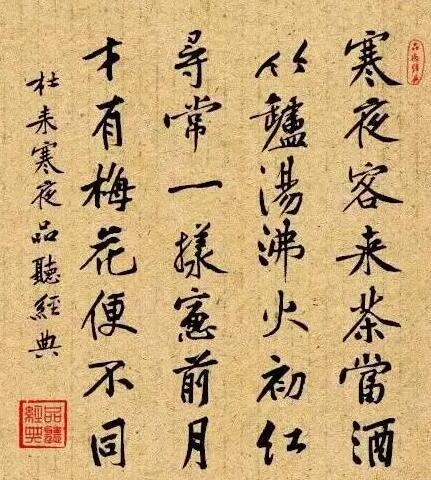 品聽經典
寒夜客来茶當酒
竹鑪湯沸火初红
尋常一樣窻前月
才有梅花便不同
杜耒寒夜品聽經典
品聽經典